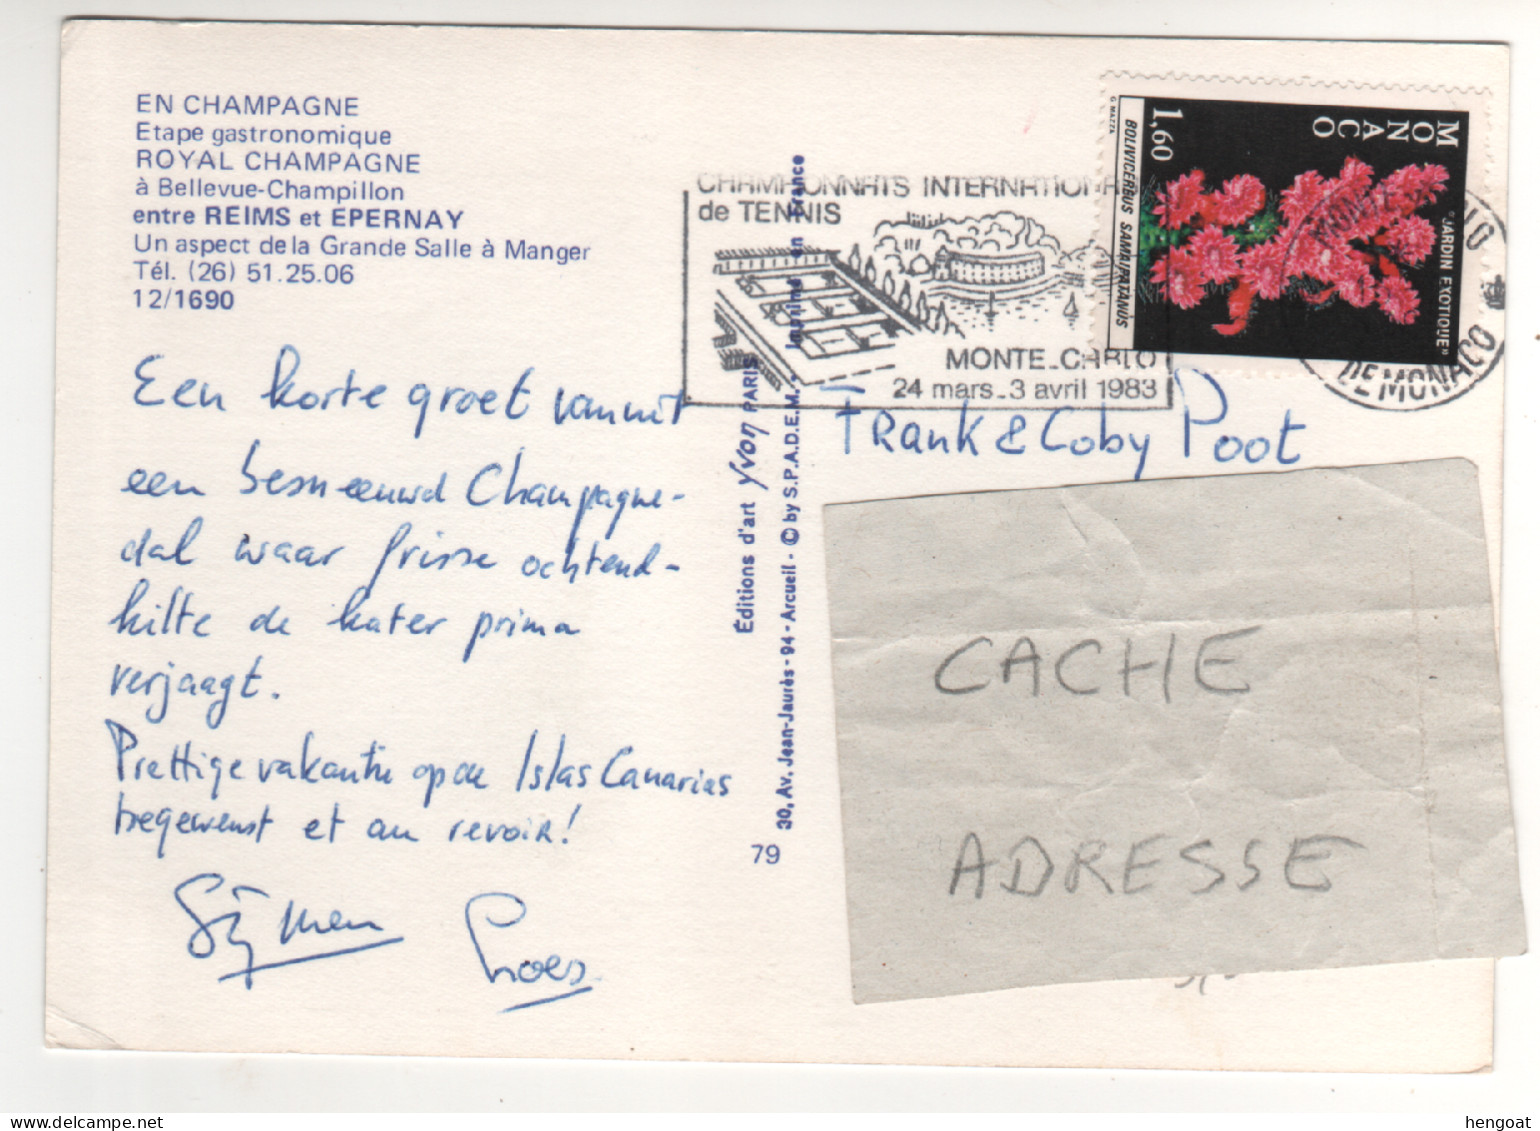 EN CHAMPAGNE
Etape gastronomique
ROYAL CHAMPAGNE
à Bellevue-Champillon
entre REIMS et EPERNAY
Un aspect de la Grande Salle à Manger
Tél. (26) 51.25.06
12/1690
Een korte groet vanuit
een besneeuwd Champagne-
dal waar frisse ochtend-
kilte de kater prima
verjaagt.
Prettige vakantie op de Islas Canarias
toegewenst et au revoir!
Sijmen
79
Éditions d'art YVON PARIS
30, Av. Jean-Jaurès - 94 - Arcueil - © by S.P.A.D.E.M. - Imprimé en France
CHAMPIONNATS INTERNATIONA
de TENNIS
MONTE_CARLO
24 mars_3 avril 1983
MONACO
1,60
BOLIVICEREUS SAMAIPATANUS
"JARDIN EXOTIQUE"
G MAZZA
MONTE CARLO
DE MONACO
Frank & Coby Poot
CACHE
ADRESSE
hengoat